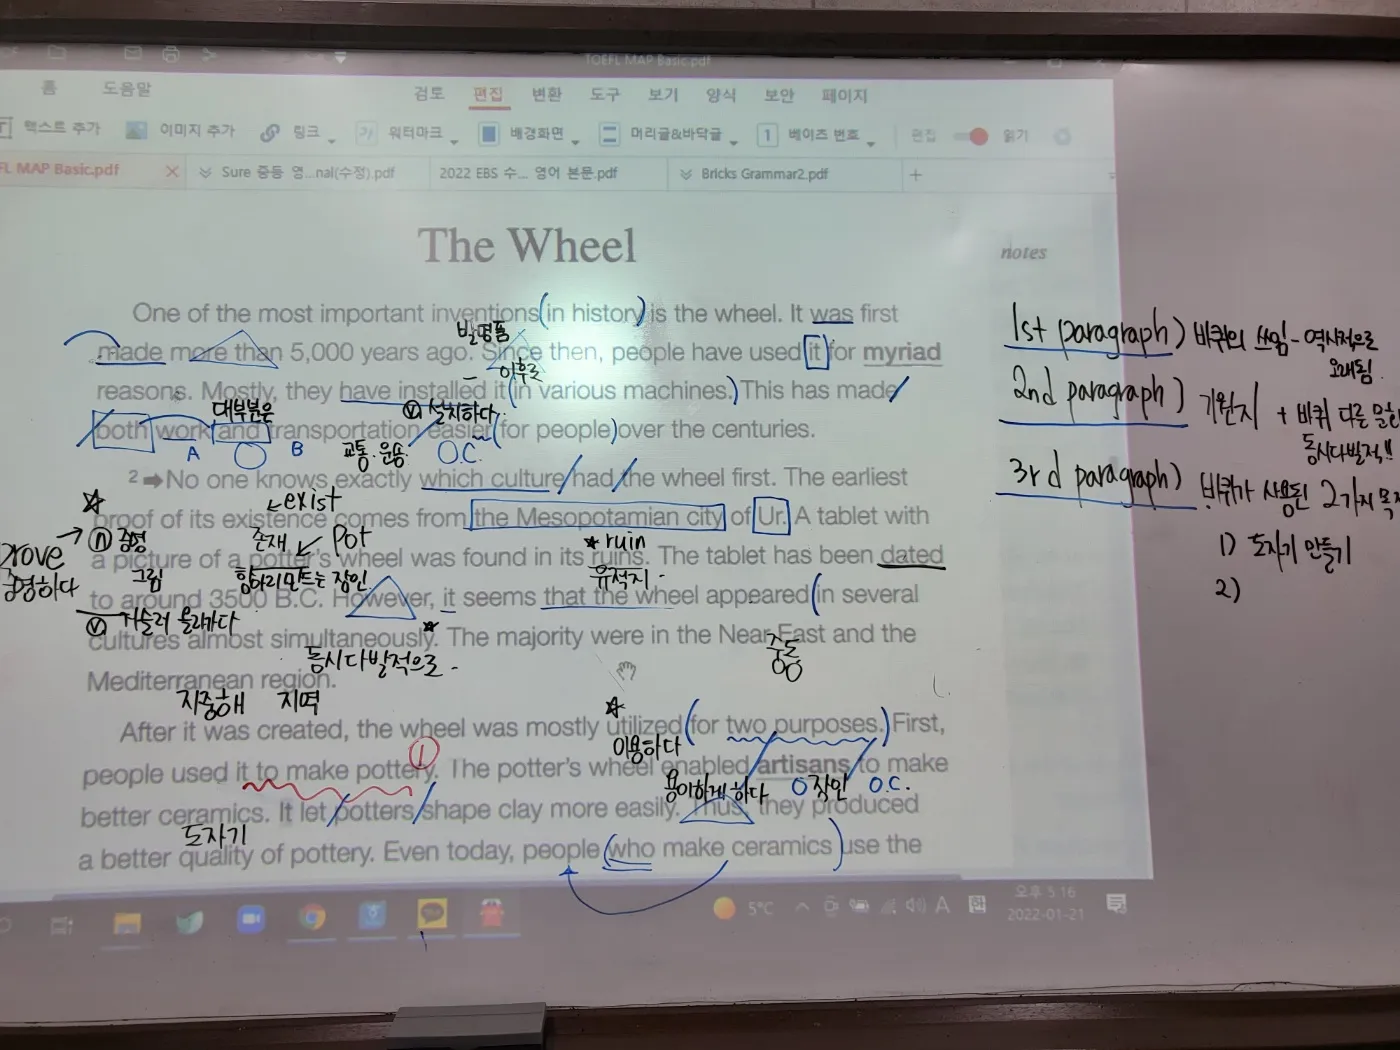 TOEFL MAP Basic.pdf
홈 도움말 검토 편집 변환 도구 보기 양식 보안 페이지
텍스트 추가 이미지 추가 링크 워터마크 배경화면 머리글&바닥글 1 베이츠 번호 편집 읽기
FL MAP Basic.pdf Sure 중등 영...nal(수정).pdf 2022 EBS 수... 영어 본문.pdf Bricks Grammar2.pdf
The Wheel
notes
One of the most important inventions (in history) is the wheel. It was first
발명품
made more than 5,000 years ago. Since then, people have used it for myriad
이후로
reasons. Mostly, they have installed it (in various machines.) This has made
대부분은 ⓥ 설치하다
both work and transportation easier (for people) over the centuries.
A B 교통·운송 O.C.
2 ➡ No one knows exactly which culture had the wheel first. The earliest
exist
proof of its existence comes from the Mesopotamian city of Ur. A tablet with
rove ⓝ 증명 존재 Pot ruin
a picture of a potter's wheel was found in its ruins. The tablet has been dated
증명하다 그림 항아리만드는 장인 유적지
to around 3500 B.C. However, it seems that the wheel appeared (in several
ⓥ 거슬러 올라가다
cultures almost simultaneously. The majority were in the Near East and the
동시다발적으로 중동
Mediterranean region.
지중해 지역
After it was created, the wheel was mostly utilized (for two purposes.) First,
이용하다
people used it to make pottery. The potter's wheel enabled artisans to make
① 용이하게 하다 O 장인 O.C.
better ceramics. It let potters shape clay more easily. Thus, they produced
도자기
a better quality of pottery. Even today, people (who make ceramics) use the
1st paragraph) 바퀴의 쓰임 - 역사적으로
오래됨
2nd paragraph) 기원지 + 바퀴 다른 문화
동시다발적!!
3rd paragraph) 바퀴가 사용된 2가지 목적
1) 도자기 만들기
2)
5°C A 한 오후 5:16
2022-01-21